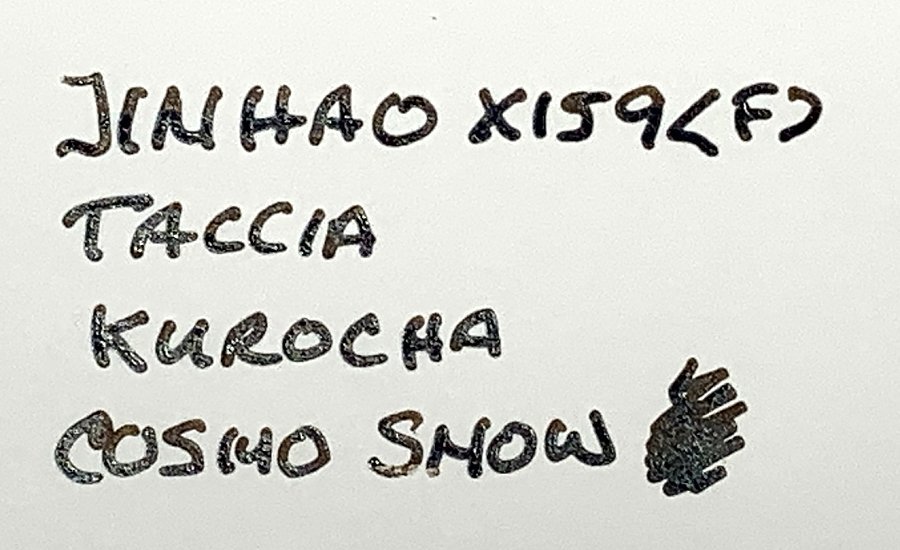 JINHAO X159 (F)
TACCIA
KUROCHA
COSMO SNOW